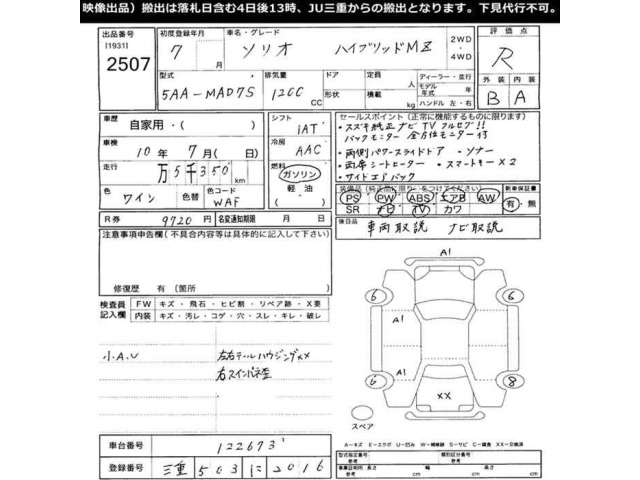 映像出品）搬出は落札日含む4日後13時、JU三重からの搬出となります。下見代行不可。
出品番号
[1931]
2507
初度登録年月
7 月
車名・グレード
ソリオ ハイブリッドMZ
2WD
・
4WD
評価点
R
型式
5AA-MAD7S
排気量
12CC
CC
ドア
形状
定員
人
積載
kg
ディーラー・並行
モデル年式 年
ハンドル 左・右
外装 内装
B A
車歴
自家用・( )
シフト
IAT
車検
10年 7月( 日)
冷房
AAC
走行
万5千350km
燃料
ガソリン
軽油
( )
色
ワイン
色替
色コード
WAF
R券
9720円
名変通知期限 月 日
セールスポイント（正常に機能するものに限ります）
・スズキ純正ナビTVフルセグ!!
バックモニター 全方位モニター付
・両側パワースライドドア ・ソナー
・両席シートヒーター ・スマートキー×2
・サイドエアバック
装備品（純正品に限り）をつけてください
PS PW ABS エアB AW
SR ナビ TV カワ
新車保証書
有・無
後日品
車両取説 ナビ取説
注意事項申告欄（不具合内容等は具体的に記入して下さい）
修復歴 有（箇所 ）
検査員記入欄
FW キズ・飛石・ヒビ割・リペア跡・X要
内装 キズ・汚レ・コゲ・穴・スレ・キレ・破レ
小A.U
左右テールハウジング××
右スインパネ歪
A1
6
6
A1
A1
6
8
××
A1
スペア
A−キズ E−エクボ U−凹み W−補修跡 S−サビ C−腐食 XX−交換済
車台番号
122673
登録番号
三重 503 に 2016
型式指定番号
参考
類別区分番号
参考
長さ cm
幅 cm
高さ cm